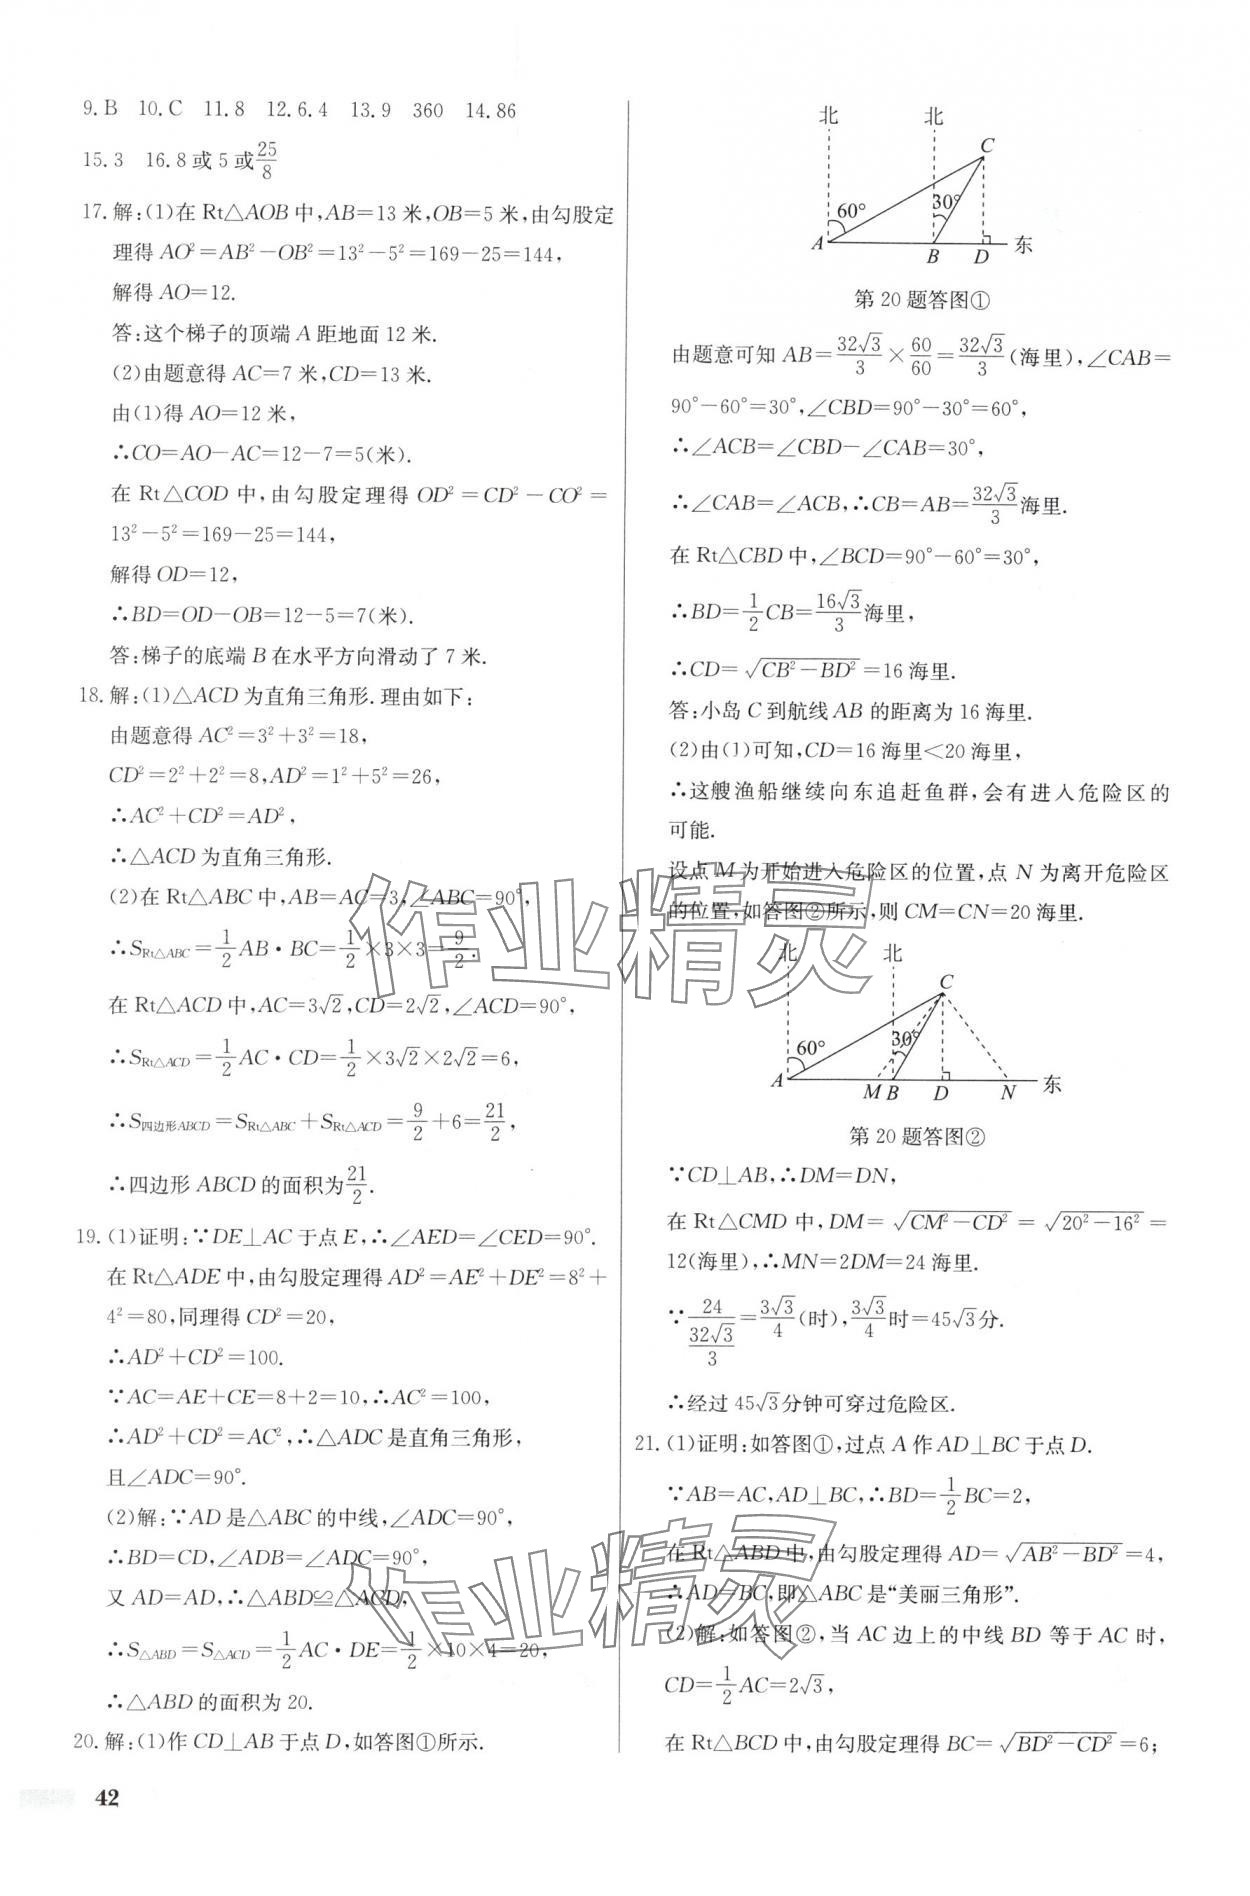 9.B 10.C 11.8 12.6.4 13.9 360 14.86
15.3 16.8或5或25/8
17.解:(1)在Rt△AOB中,AB=13米,OB=5米,由勾股定
理得AO²=AB²-OB²=13²-5²=169-25=144,
解得AO=12.
答:这个梯子的顶端A距地面12米.
(2)由题意得AC=7米,CD=13米.
由(1)得AO=12米,
∴CO=AO-AC=12-7=5(米).
在Rt△COD中,由勾股定理得OD²=CD²-CO²=
13²-5²=169-25=144,
解得OD=12,
∴BD=OD-OB=12-5=7(米).
答:梯子的底端B在水平方向滑动了7米.
18.解:(1)△ACD为直角三角形.理由如下:
由题意得AC²=3²+3²=18,
CD²=2²+2²=8,AD²=1²+5²=26,
∴AC²+CD²=AD²,
∴△ACD为直角三角形.
(2)在Rt△ABC中,AB=AC=3,∠ABC=90°,
∴S_Rt△ABC=1/2AB·BC=1/2×3×3=9/2.
在Rt△ACD中,AC=3√2,CD=2√2,∠ACD=90°,
∴S_Rt△ACD=1/2AC·CD=1/2×3√2×2√2=6,
∴S_四边形ABCD=S_Rt△ABC+S_Rt△ACD=9/2+6=21/2,
∴四边形ABCD的面积为21/2.
19.(1)证明:∵DE⊥AC于点E,∴∠AED=∠CED=90°.
在Rt△ADE中,由勾股定理得AD²=AE²+DE²=8²+
4²=80,同理得CD²=20,
∴AD²+CD²=100.
∵AC=AE+CE=8+2=10,∴AC²=100,
∴AD²+CD²=AC²,∴△ADC是直角三角形,
且∠ADC=90°.
(2)解:∵AD是△ABC的中线,∠ADC=90°,
∴BD=CD,∠ADB=∠ADC=90°,
又AD=AD,∴△ABD≌△ACD,
∴S_△ABD=S_△ACD=1/2AC·DE=1/2×10×4=20,
∴△ABD的面积为20.
20.解:(1)作CD⊥AB于点D,如答图①所示.
42
北 北
C
60° 30°
A B D 东
第20题答图①
由题意可知AB=32√3/3×60/60=32√3/3(海里),∠CAB=
90°-60°=30°,∠CBD=90°-30°=60°,
∴∠ACB=∠CBD-∠CAB=30°,
∴∠CAB=∠ACB,∴CB=AB=32√3/3海里.
在Rt△CBD中,∠BCD=90°-60°=30°,
∴BD=1/2CB=16√3/3海里,
∴CD=√(CB²-BD²)=16海里.
答:小岛C到航线AB的距离为16海里.
(2)由(1)可知,CD=16海里<20海里,
∴这艘渔船继续向东追赶鱼群,会有进入危险区的
可能.
设点M为开始进入危险区的位置,点N为离开危险区
的位置,如答图②所示,则CM=CN=20海里.
北 北
C
60° 30°
A M B D N 东
第20题答图②
∵CD⊥AB,∴DM=DN,
在Rt△CMD中,DM=√(CM²-CD²)=√(20²-16²)=
12(海里),∴MN=2DM=24海里.
∵24/(32√3/3)=3√3/4(时),3√3/4时=45√3分.
∴经过45√3分钟可穿过危险区.
21.(1)证明:如答图①,过点A作AD⊥BC于点D.
∵AB=AC,AD⊥BC,∴BD=1/2BC=2,
在Rt△ABD中,由勾股定理得AD=√(AB²-BD²)=4,
∴AD=BC,即△ABC是“美丽三角形”.
(2)解:如答图②,当AC边上的中线BD等于AC时,
CD=1/2AC=2√3,
在Rt△BCD中,由勾股定理得BC=√(BD²-CD²)=6;
作业精灵
作业精灵